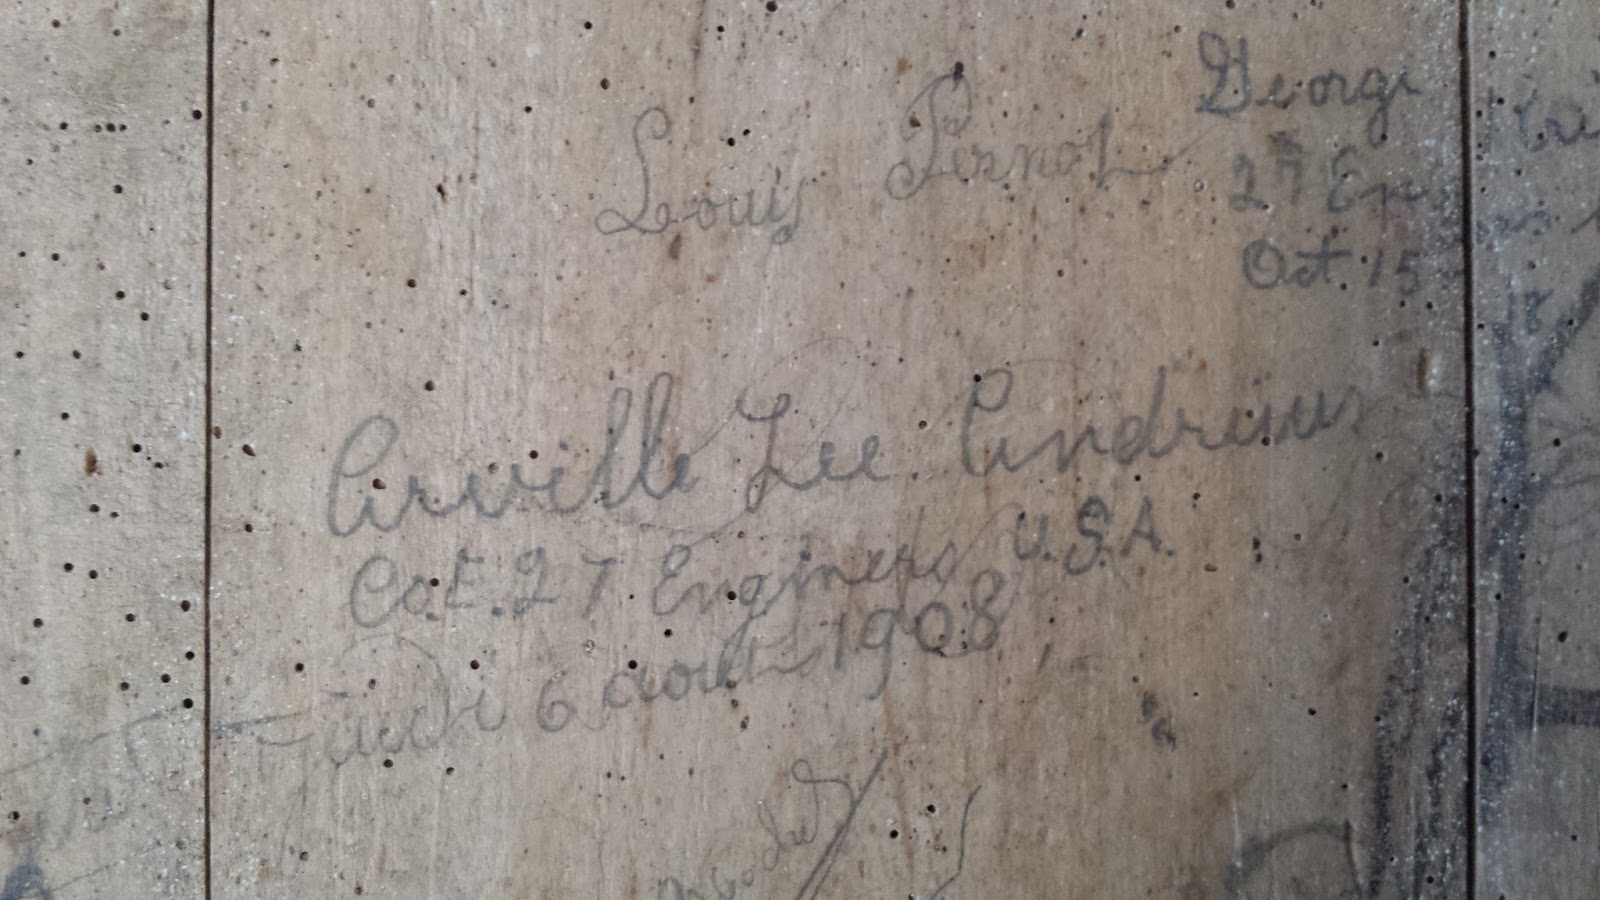 Louis Pernot
George
27 En
Oct. 15
18
Arville Lee Andrews
Co. E. 27 Engineers U.S.A.
6 aout 1908